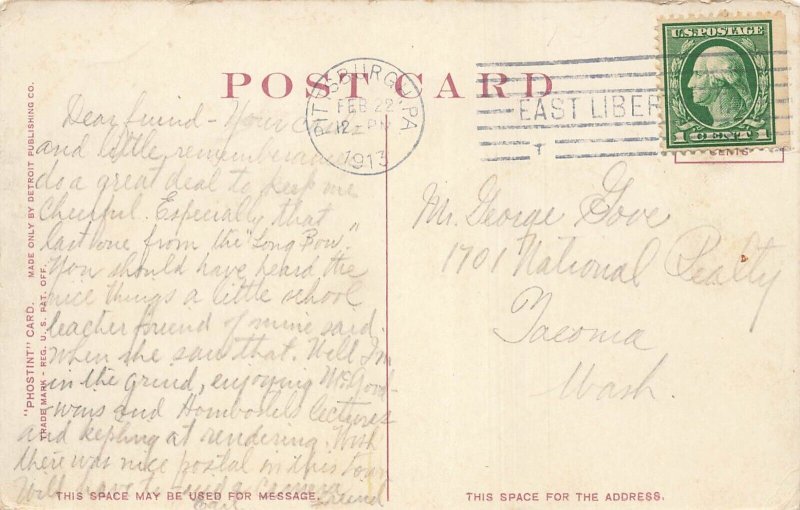 POST CARD
PITTSBURGH, PA
FEB 22
12 - PM
1913
EAST LIBER
U.S. POSTAGE
1 CENTS 1
CENTS
Dear friend - Your
and little remembrances
do a great deal to keep me
cheerful. Especially that
last one from the "Long Bow".
You should have heard the
nice things a little school
teacher friend of mine said
when she saw that. Well I'm
in the grind, enjoying McGood-
wins and Hornbostels lectures
and at rendering. Wish
there was nice postal in this town
Will have to send a camera
friend
Mr. George Gove
1701 National Realty
Tacoma
Wash.
"PHOSTINT" CARD. MADE ONLY BY DETROIT PUBLISHING CO.
TRADE MARK - REG. U. S. PAT. OFF.
THIS SPACE MAY BE USED FOR MESSAGE.
THIS SPACE FOR THE ADDRESS.